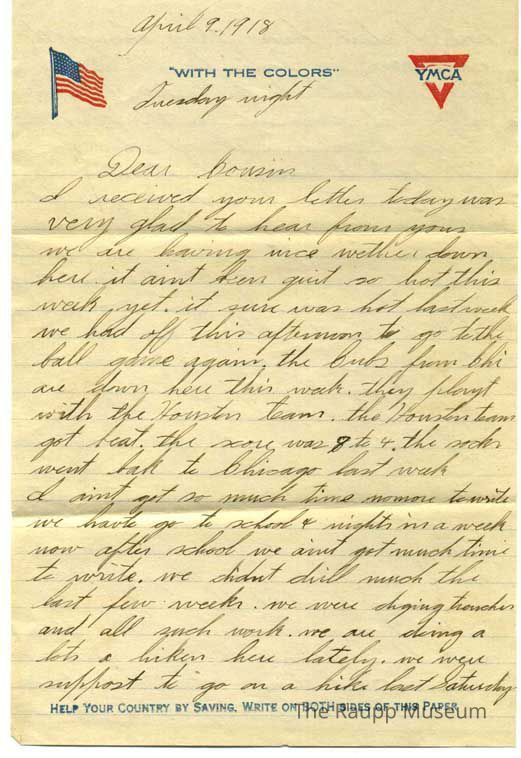 April 9. 1918
"WITH THE COLORS"
YMCA
Tuesday night
Dear Cousin
I received your letter today was
very glad to hear from yous
we are having nice wether down
here. it aint been quit so hot this
week yet. it sure was hot last week
we had off this afternoon to go to the
ball game again. the Cubs from Chi
are down here this week. they playt
with the Houston team. the Houston team
got beat. the score was 8 to 4. the socks
went bak to Chicago last week
I aint got so much time nomore to write
we have to go to school 4 nights in a week
now after school we aint got much time
to write. we didnt drill much the
last few weeks. we were diging trenches
and all such work. we are doing a
lots a hiken here lately. we were
suppost to go on a hike last Saturday
HELP YOUR COUNTRY BY SAVING. WRITE ON BOTH SIDES OF THIS PAPER
The Raupp Museum